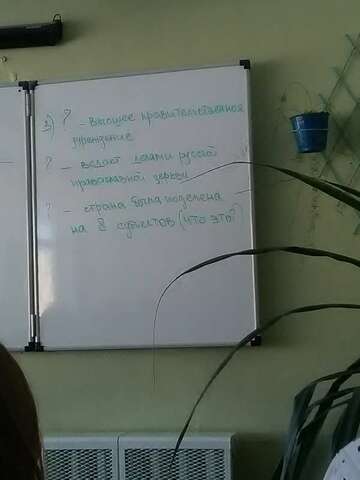 3) ? – высшее правительственное
учреждение
? – ведает делами русской
православной церкви
? – страна была поделена
на 8 субъектов (что это?)